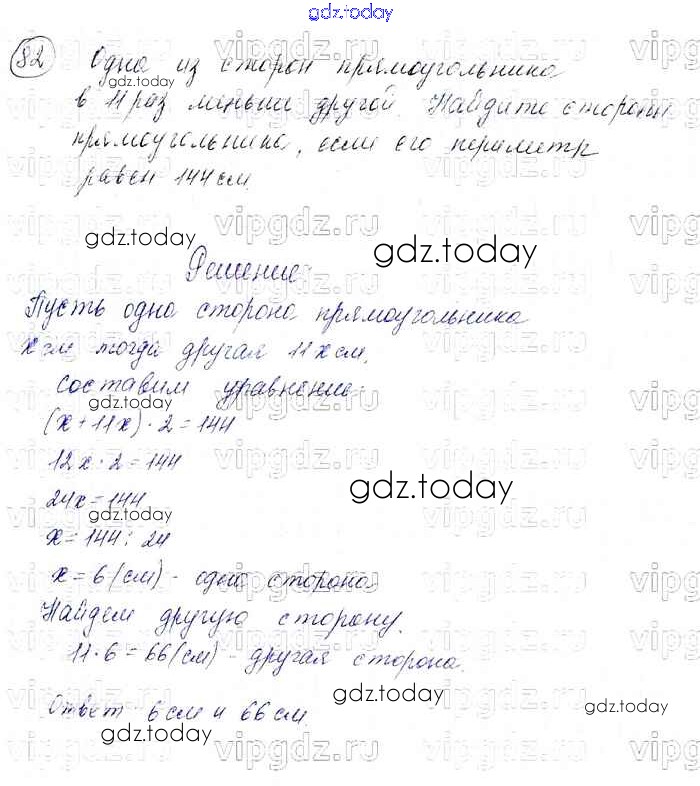 gdz.today
82 Одна из сторон прямоугольника
в 11 раз меньше другой. Найдите стороны
прямоугольника, если его периметр
равен 144 см
Решение:
Пусть одна сторона прямоугольника
x см тогда другая 11x см.
составим уравнение:
(x+11x)·2=144
12x·2=144
24x=144
x=144:24
x=6(см) - одна сторона
Найдем другую сторону.
11·6=66(см) - другая сторона.
Ответ 6 см и 66 см.